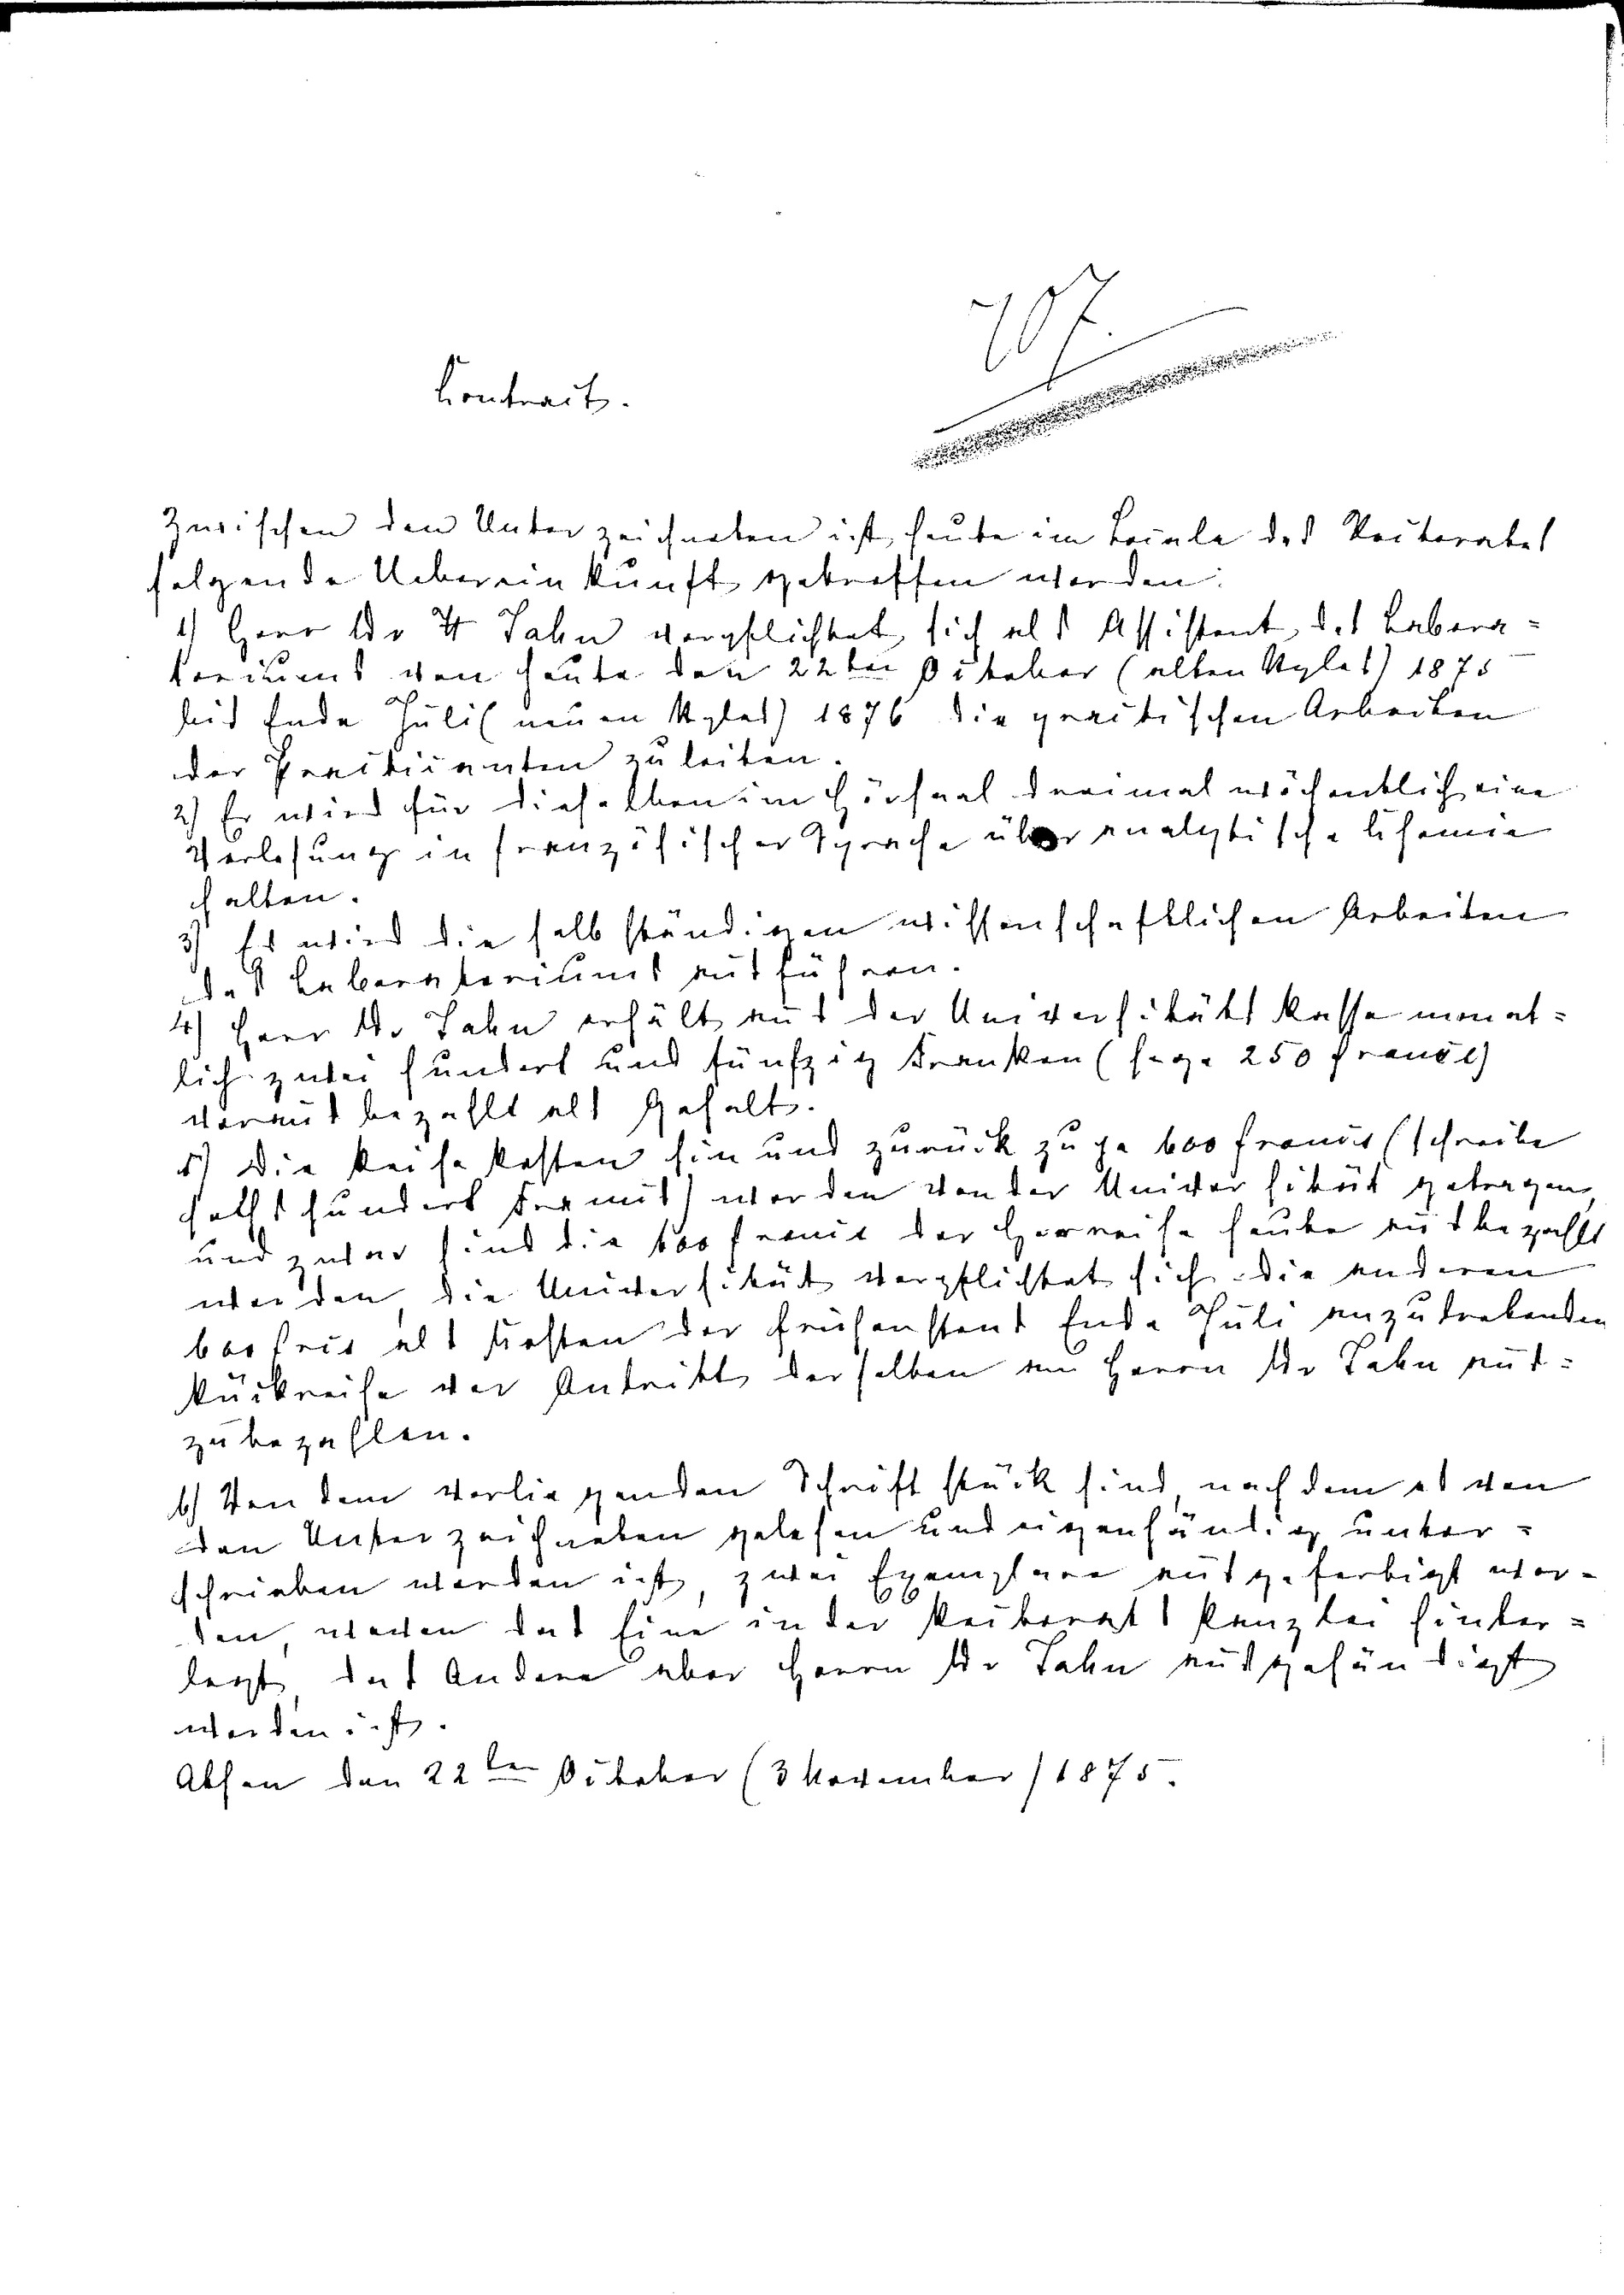 707.
Contract.
Zwischen den Unterzeichneten ist heute im Locale des Rectorates
folgende Uebereinkunft getroffen worden:
1) Herr Dr H Jahn verpflichtet sich als Assistent des Labora=
toriums von heute den 22ten October (alten Styles) 1875
bis Ende Juli (neuen Styles) 1876 die practischen Arbeiten
der Practicanten zu leiten.
2) Er wird für dieselben im Hörsaal dreimal wöchentlich eine
Vorlesung in französischer Sprache über analytische Chemie
halten.
3) Er wird die selbständigen wissenschaftlichen Arbeiten
des Laboratoriums ausführen.
4) Herr Dr Jahn erhält aus der Universitätskasse monat=
lich zwei hundert und fünfzig Franken (sage 250 francs)
voraus bezahlt als Gehalt.
5) Die Reisekosten hin und zurück zu je 600 francs (schreibe
sechshundert Francs) werden von der Universität getragen,
und zwar sind die 600 francs der Herreise heute ausbezahlt
worden, die Universität verpflichtet sich die anderen
600 frcs als Kosten der frühenstens Ende Juli anzutretenden
Rückreise vor Antritt derselben an Herrn Dr Jahn aus=
zubezahlen.
6) Von dem vorliegenden Schriftstück sind, nachdem es von
den Unterzeichneten gelesen und eigenhändig unter=
schrieben worden ist, zwei Exemplare ausgefertigt wor=
den, wovon das Eine in der Rectorats Kanzlei hinter=
legt, das Andere aber Herrn Dr Jahn ausgehändigt
worden ist.
Athen den 22ten October (3 November) 1875.